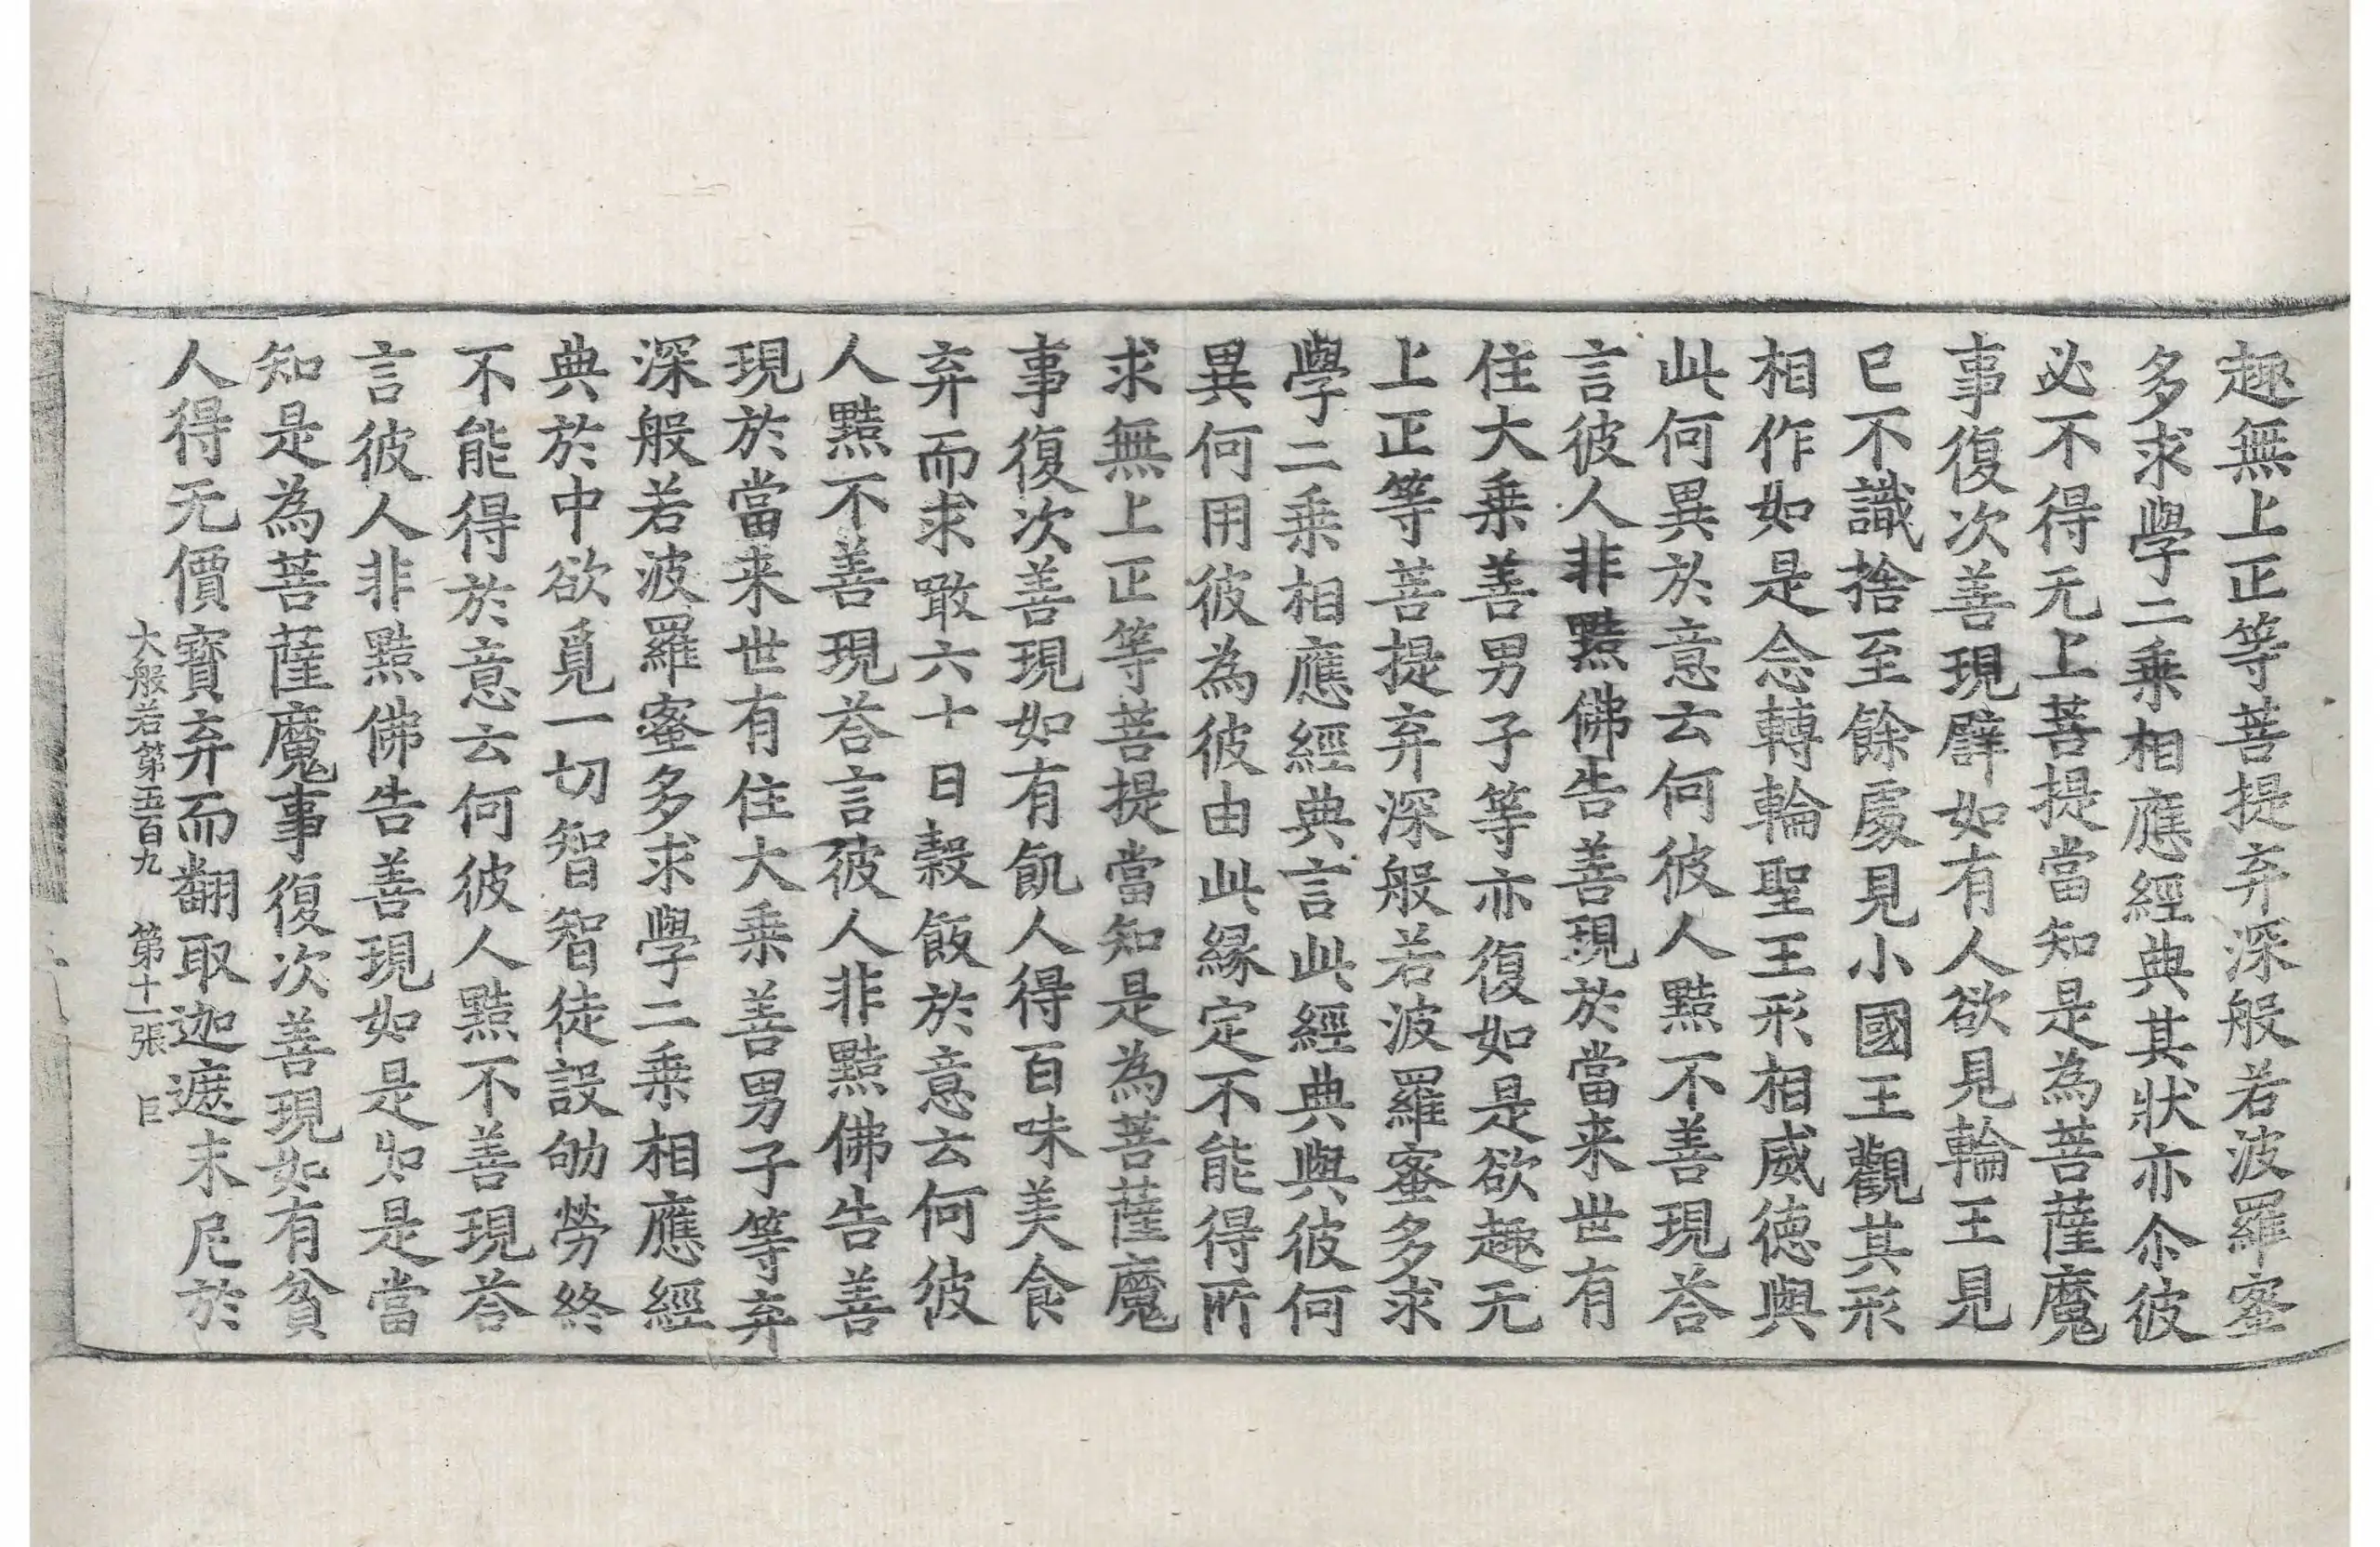 趣無上正等菩提弃深般若波羅蜜
多求學二乗相應經典其狀亦尒彼
必不得无上菩提當知是為菩薩魔
事復次善現譬如有人欲見輪王見
已不識捨至餘處見小國王觀其形
相作如是念轉輪聖王形相威德與
此何異於意云何彼人黠不善現荅
言彼人非黠佛告善現於當来世有
住大乗善男子等亦復如是欲趣无
上正等菩提弃深般若波羅蜜多求
學二乗相應經典言此經典與彼何
異何用彼為彼由此縁定不能得所
求無上正等菩提當知是為菩薩魔
事復次善現如有飢人得百味美食
弃而求噉六十日穀飯於意云何彼
人黠不善現荅言彼人非黠佛告善
現於當来世有住大乗善男子等弃
深般若波羅蜜多求學二乗相應經
典於中欲覓一切智智徒設劬勞終
不能得於意云何彼人黠不善現荅
言彼人非黠佛告善現如是如是當
知是為菩薩魔事復次善現如有貧
人得无價寶弃而翻取迦遮末尼於
大般若第五百九　第十一張　巨